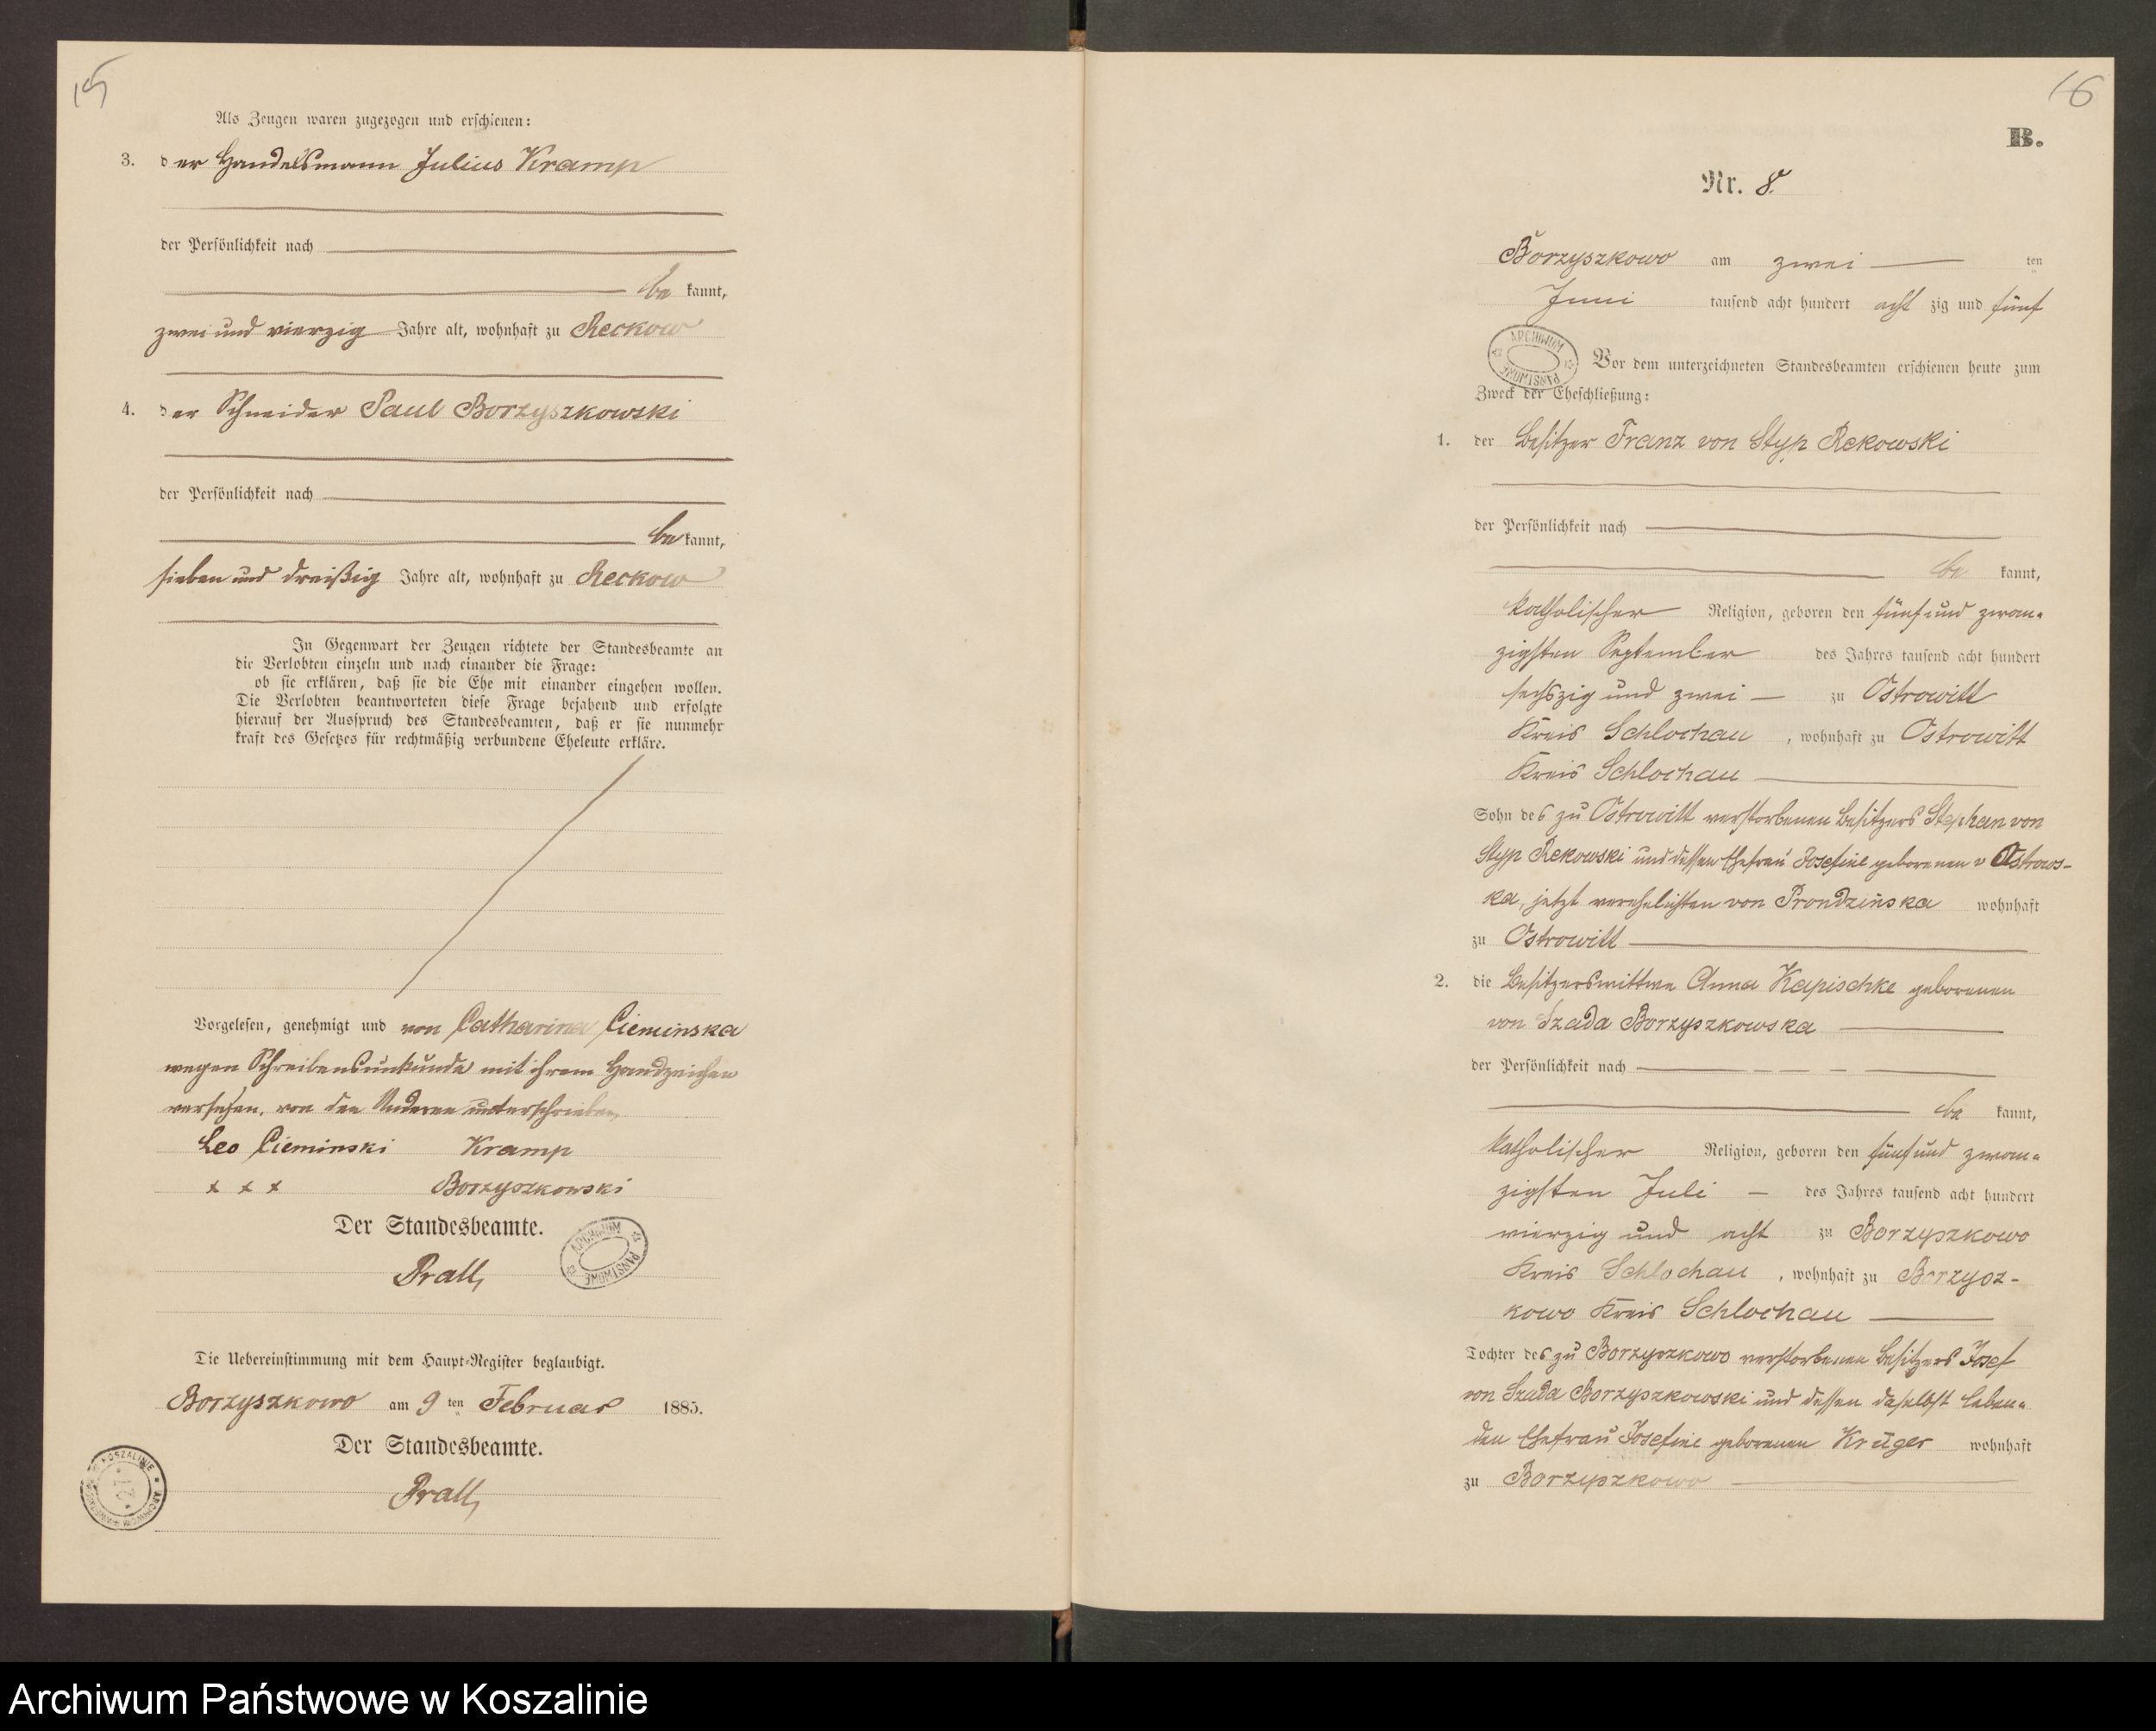 15
Als Zeugen waren zugezogen und erschienen:
3. der Handelsmann Julius Kramp
der Persönlichkeit nach
be kannt,
zwei und vierzig Jahre alt, wohnhaft zu Reckow
4. der Schneider Paul Borzyszkowski
der Persönlichkeit nach
be kannt,
sieben und dreißig Jahre alt, wohnhaft zu Reckow
In Gegenwart der Zeugen richtete der Standesbeamte an
die Verlobten einzeln und nach einander die Frage:
ob sie erklären, daß sie die Ehe mit einander eingehen wollen.
Die Verlobten beantworteten diese Frage bejahend und erfolgte
hierauf der Ausspruch des Standesbeamten, daß er sie nunmehr
kraft des Gesetzes für rechtmäßig verbundene Eheleute erkläre.
Vorgelesen, genehmigt und von Catharina Cieminska
wegen Schreibensunkunde mit ihrem Handzeichen
versehen, von den Anderen unterschrieben,
Leo Cieminski Kramp
x x x Borzyszkowski
Der Standesbeamte.
ARCHIWUM PAŃSTWOWE
Prall,
Die Uebereinstimmung mit dem Haupt-Register beglaubigt.
Borzyszkowo am 9 ten Februar 1885.
Der Standesbeamte.
Prall,
16
B.
Nr. 8.
Borzyszkowo am zwei ten
Juni tausend acht hundert acht zig und fünf
ARCHIWUM PAŃSTWOWE
Vor dem unterzeichneten Standesbeamten erschienen heute zum
Zweck der Eheschließung:
1. der Besitzer Franz von Styp Rekowski
der Persönlichkeit nach
be kannt,
katholischer Religion, geboren den fünf und zwan-
zigsten September des Jahres tausend acht hundert
sechszig und zwei zu Ostrowitt
Kreis Schlochau, wohnhaft zu Ostrowitt
Kreis Schlochau
Sohn des zu Ostrowitt verstorbenen Besitzers Stephan von
Styp Rekowski und dessen Ehefrau Josefine geborenen v Ostrows-
ka, jetzt verehelichten von Prondzinska wohnhaft
zu Ostrowitt
2. die Besitzerswittwe Anna Kapischke geborenen
von Szada Borzyszkowska
der Persönlichkeit nach
be kannt,
katholischer Religion, geboren den fünf und zwan-
zigsten Juli des Jahres tausend acht hundert
vierzig und acht zu Borzyszkowo
Kreis Schlochau, wohnhaft zu Borzysz-
kowo Kreis Schlochau
Tochter des zu Borzyszkowo verstorbenen Besitzers Josef
von Szada Borzyszkowski und dessen daselbst leben-
den Ehefrau Josefine geborenen Krüger wohnhaft
zu Borzyszkowo
Archiwum Państwowe w Koszalinie